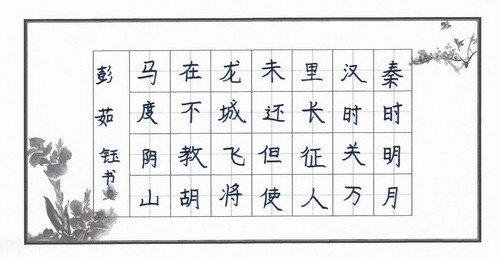 秦时明月
汉时关万
里长征人
未还但使
龙城飞将
在不教胡
马度阴山
彭茹钰书